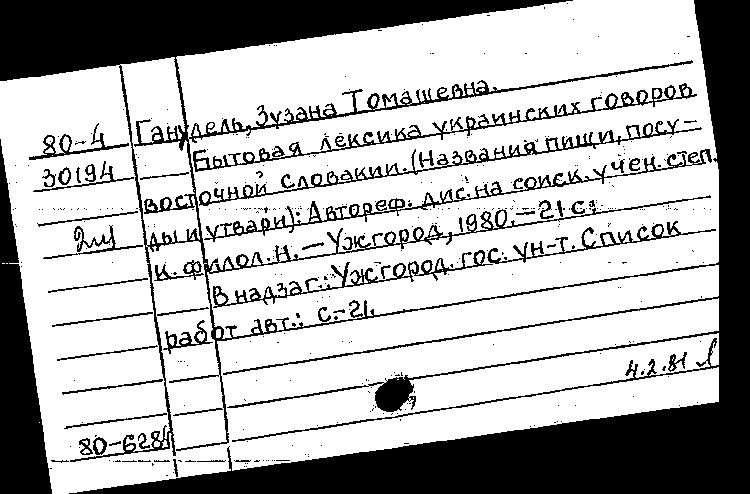 80-4 Ганудель, Зузана Томашевна.
30194 Бытовая лексика украинских говоров
восточной Словакии. (Названия пищи, посу-
2 ды и утвари): Автореф. дис. на соиск. учен. степ.
к. филол. н. — Ужгород, 1980. — 21 с.
В надзаг.: Ужгород. гос. ун-т. Список
работ авт.: с.-21.
4.2.81
80-628